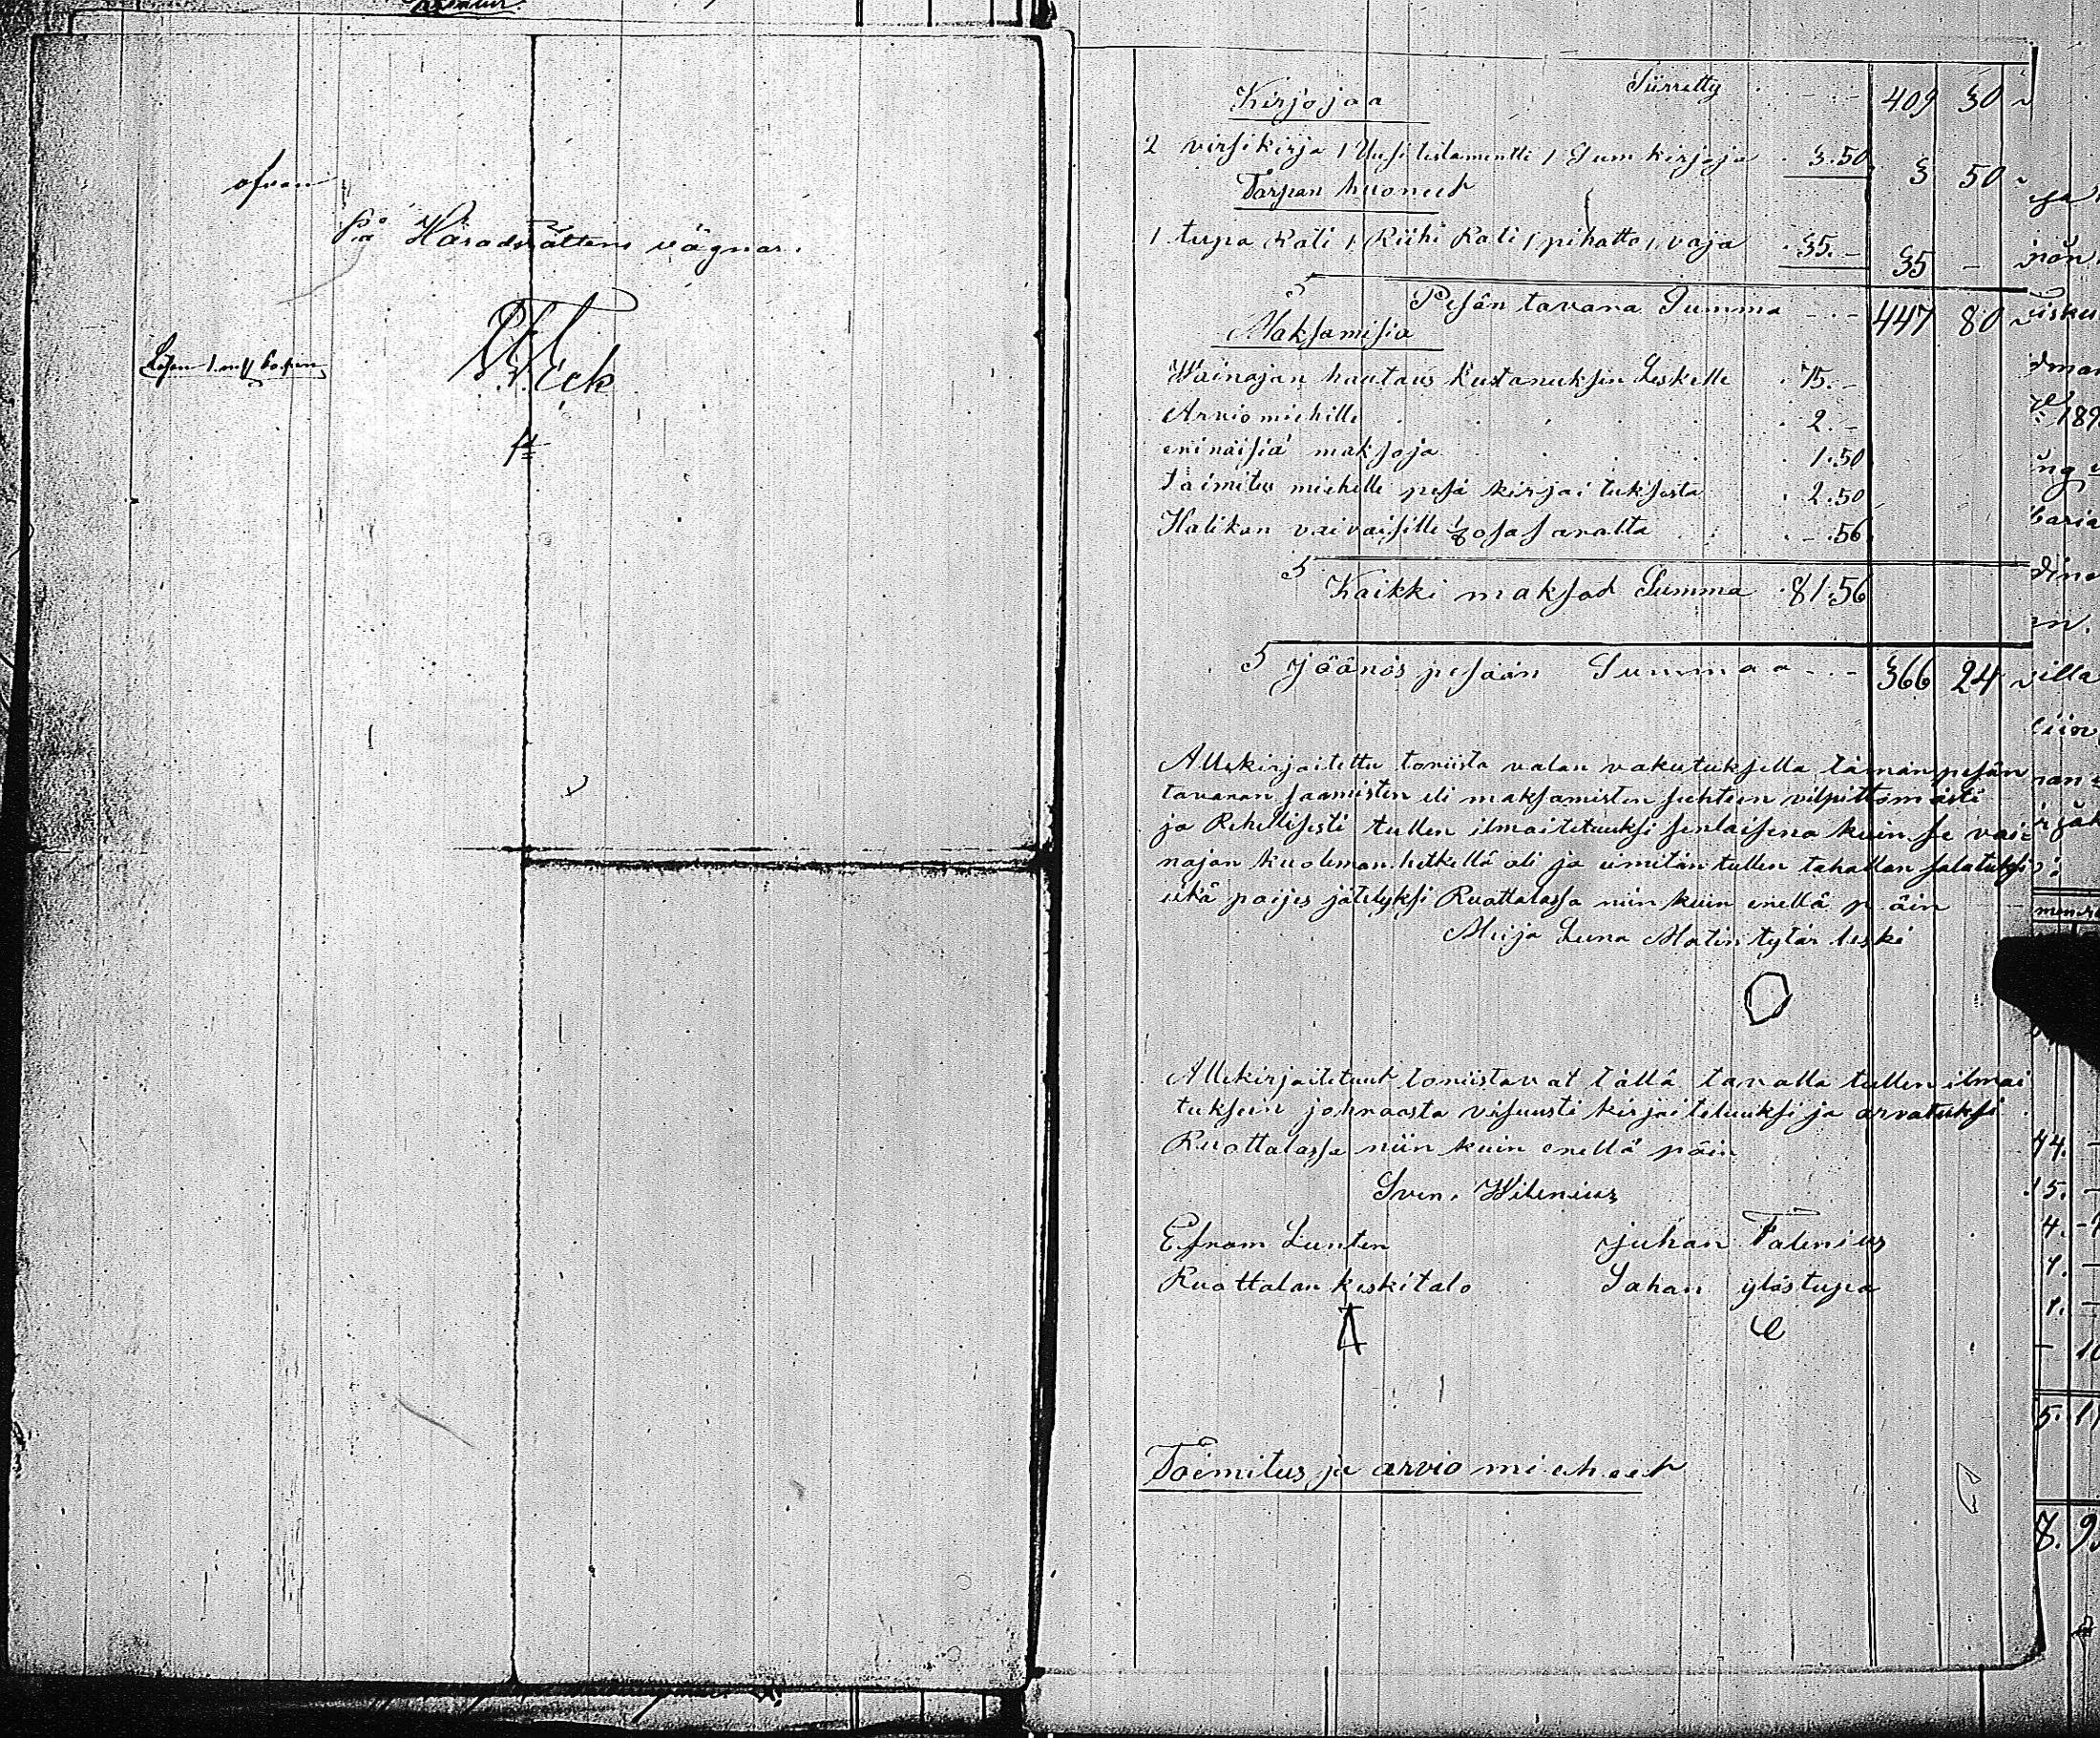 ofvan
På Häradsrättens vägnar.
Eck
Kirjojaa Siirretty 409 30
2 virsikirja 1 Uusi testamentti 1 Sum kirjoja 3.50 3 50
Torpan huoneet
1 tupa Rati 1 Riihi Rati 1 pihatto 1 vaja 35.- 35 -
Pesän tavara Summa 447 80
Maksamisia
Wainajan hautaus kustanuksen Leskelle 75.-
Arviomiehille 2.-
eninäisiä maksoja 1.50
Toimitus miehelle pesä kirjoituksesta 2.50
Halikon vaivaisille 1/8 osa saralta -.56
Kaikki maksod Summa 81.56
Jäänös pesään Summaa 366 24
Allekirjoitettu toniista valan vakutuksella tämän pesän
tavaran saamisten eli maksamisten suhteen vilpittömästi
ja Rehellisesti tullen ilmoitetuuksi senlaisena kuin se vai
najan kuoleman hetkellä oli ja eimitän tullen tahallan salatuksi
eikä poijes jätetyksi Ruottalassa niin kuin enellä p äin
Maija Leena Matin tytär leski
Allekirjoitetuut toniistavat tällä tavalla tullen ilmoi
tuksen johnaasta visuusti kirjoitetuuksi ja arvatuksi
Ruottalassa niin kuin enellä päin
Sven. Wilenius
Efram Lunten Juhan Falenius
Ruottalan keskitalo Sahan ylöstupa
Toimitus ja arvio mieheet